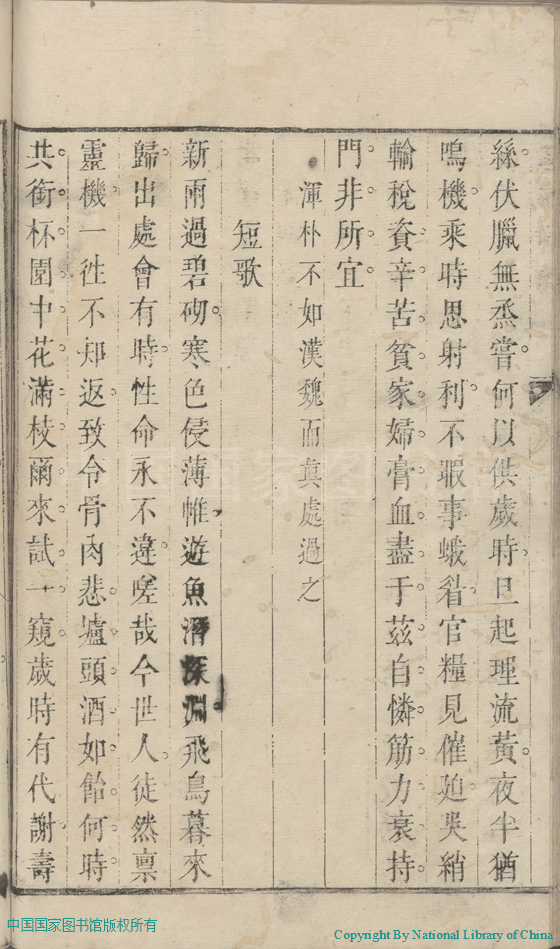 絲伏臘無烝嘗何以供歲時旦起理流黃夜半猶
鳴機乘時思射利不暇事蛾眉官糧見催迫吳綃
輸稅資辛苦貧家婦膏血盡于茲自憐筋力衰持
門非所宜
渾朴不如漢魏而真處過之
短歌
新雨過碧砌寒色侵薄帷遊魚潛深淵飛鳥暮來
歸出處會有時性命永不違嗟哉今世人徒然禀
靈機一徃不知返致令骨肉悲壚頭酒如飴何時
共銜杯園中花滿枝爾來試一窺歲時有代謝壽
中国国家图书馆版权所有
Copyright By National Library of China